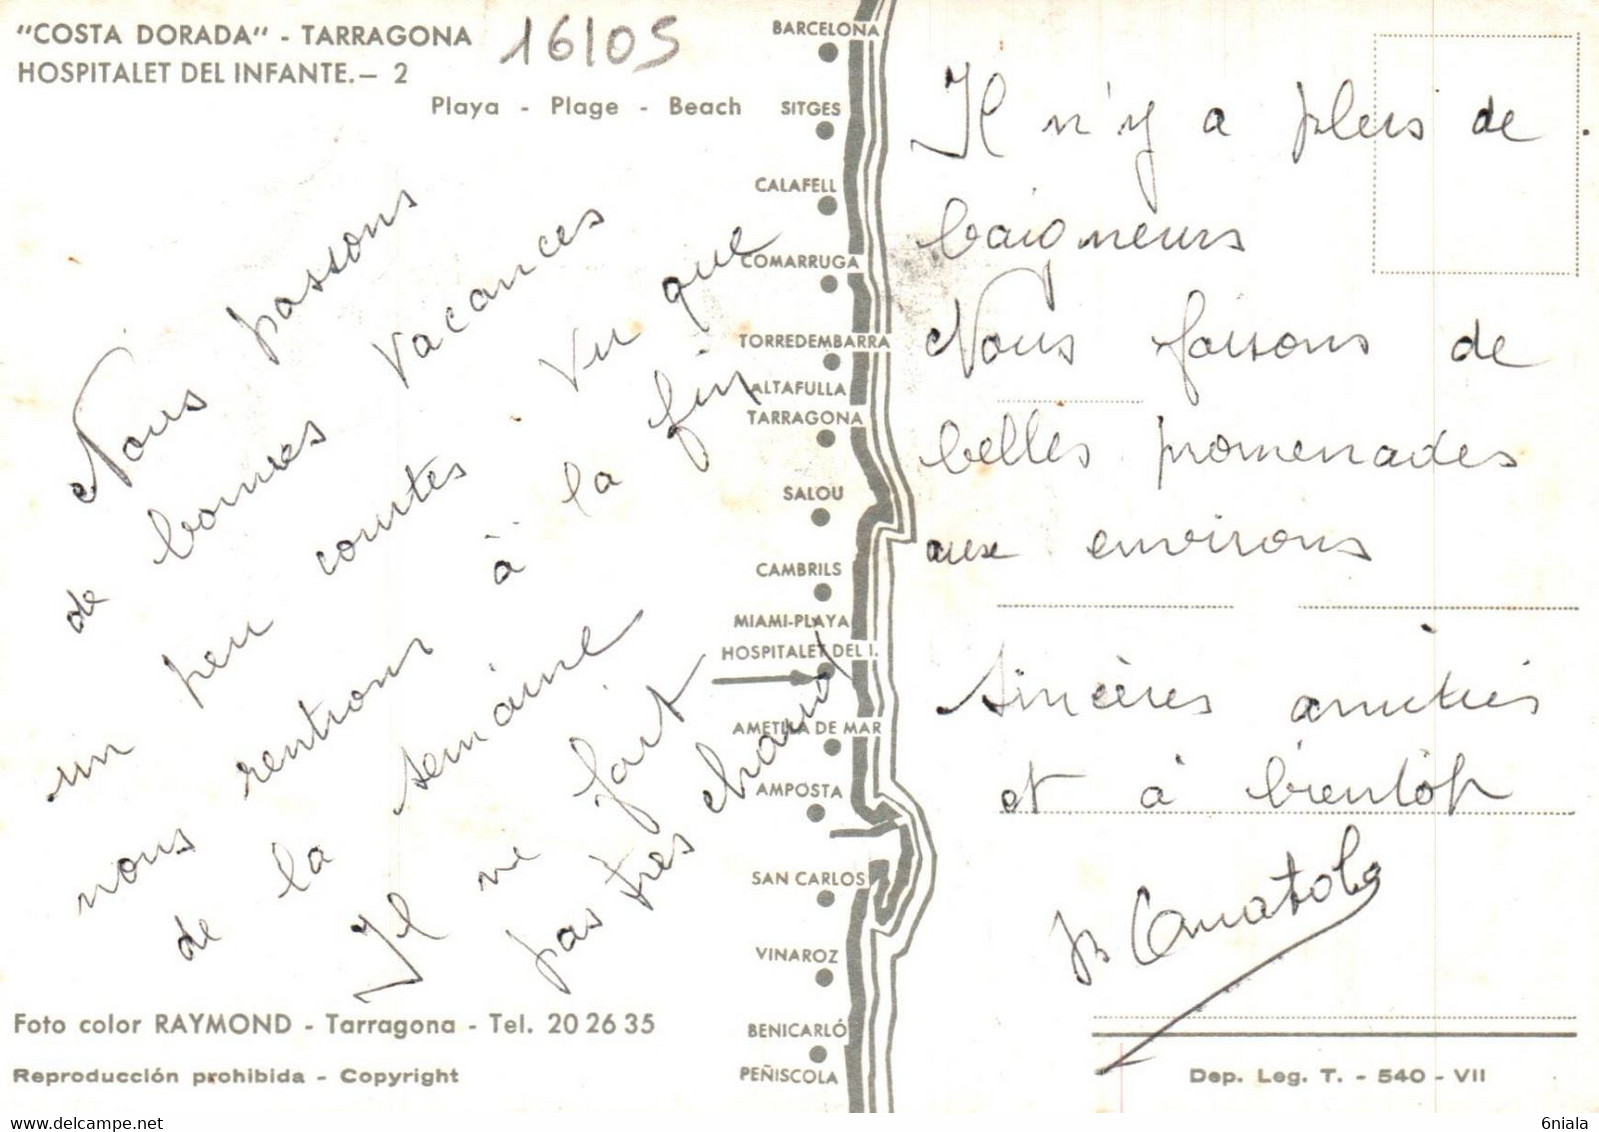 "COSTA DORADA" - TARRAGONA
HOSPITALET DEL INFANTE.— 2
16105
Playa - Plage - Beach
Nous passons
de bonnes vacances
un peu courtes vu que
nous rentrons à la fin
de la semaine
Il ne fait
pas très chaud
BARCELONA
SITGES
CALAFELL
COMARRUGA
TORREDEMBARRA
ALTAFULLA
TARRAGONA
SALOU
CAMBRILS
MIAMI-PLAYA
HOSPITALET DEL I.
AMETLLA DE MAR
AMPOSTA
SAN CARLOS
VINAROZ
BENICARLÓ
PEÑISCOLA
Il n'y a plus de
baigneurs
Nous faisons de
belles promenades
aux environs
Sincères amitiés
et à bientôt
Foto color RAYMOND - Tarragona - Tel. 20 26 35
Reproducción prohibida - Copyright
Dep. Leg. T. - 540 - VII
https://www.delcampe.net
6niala